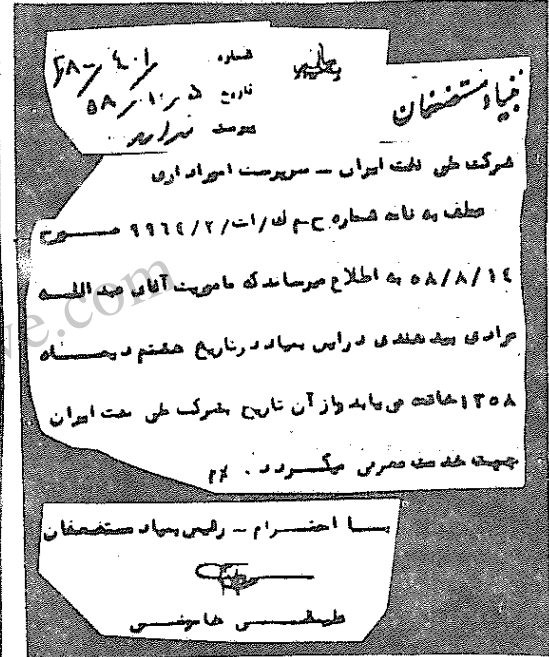 بنیاد مستضعفان
شماره
تاریخ ۵ر۱۰ر۵۸
پیوست ندارد
شرکت ملی نفت ایران – سرپرست امور اداری
عطف به نامه شماره ح‌م ك/ات/۲/۹۹۶٤ مـــورخ
۵۸/۸/۱٤ به اطلاع میرساند که ماموریت آقای عبد اللـــه
مرادی بید هندی در این بنیاد در تاریخ هشتم دیمـــاه
۱۳۵۸ خاتمه می یابد و از آن تاریخ بشرکت ملی نفت ایران
جهت خدمت معرفی میگـــردد . م/
بـــا احتـــرام – رئیس بنیاد مستضعفان
علینقـــی خاموشـــی
ve.com